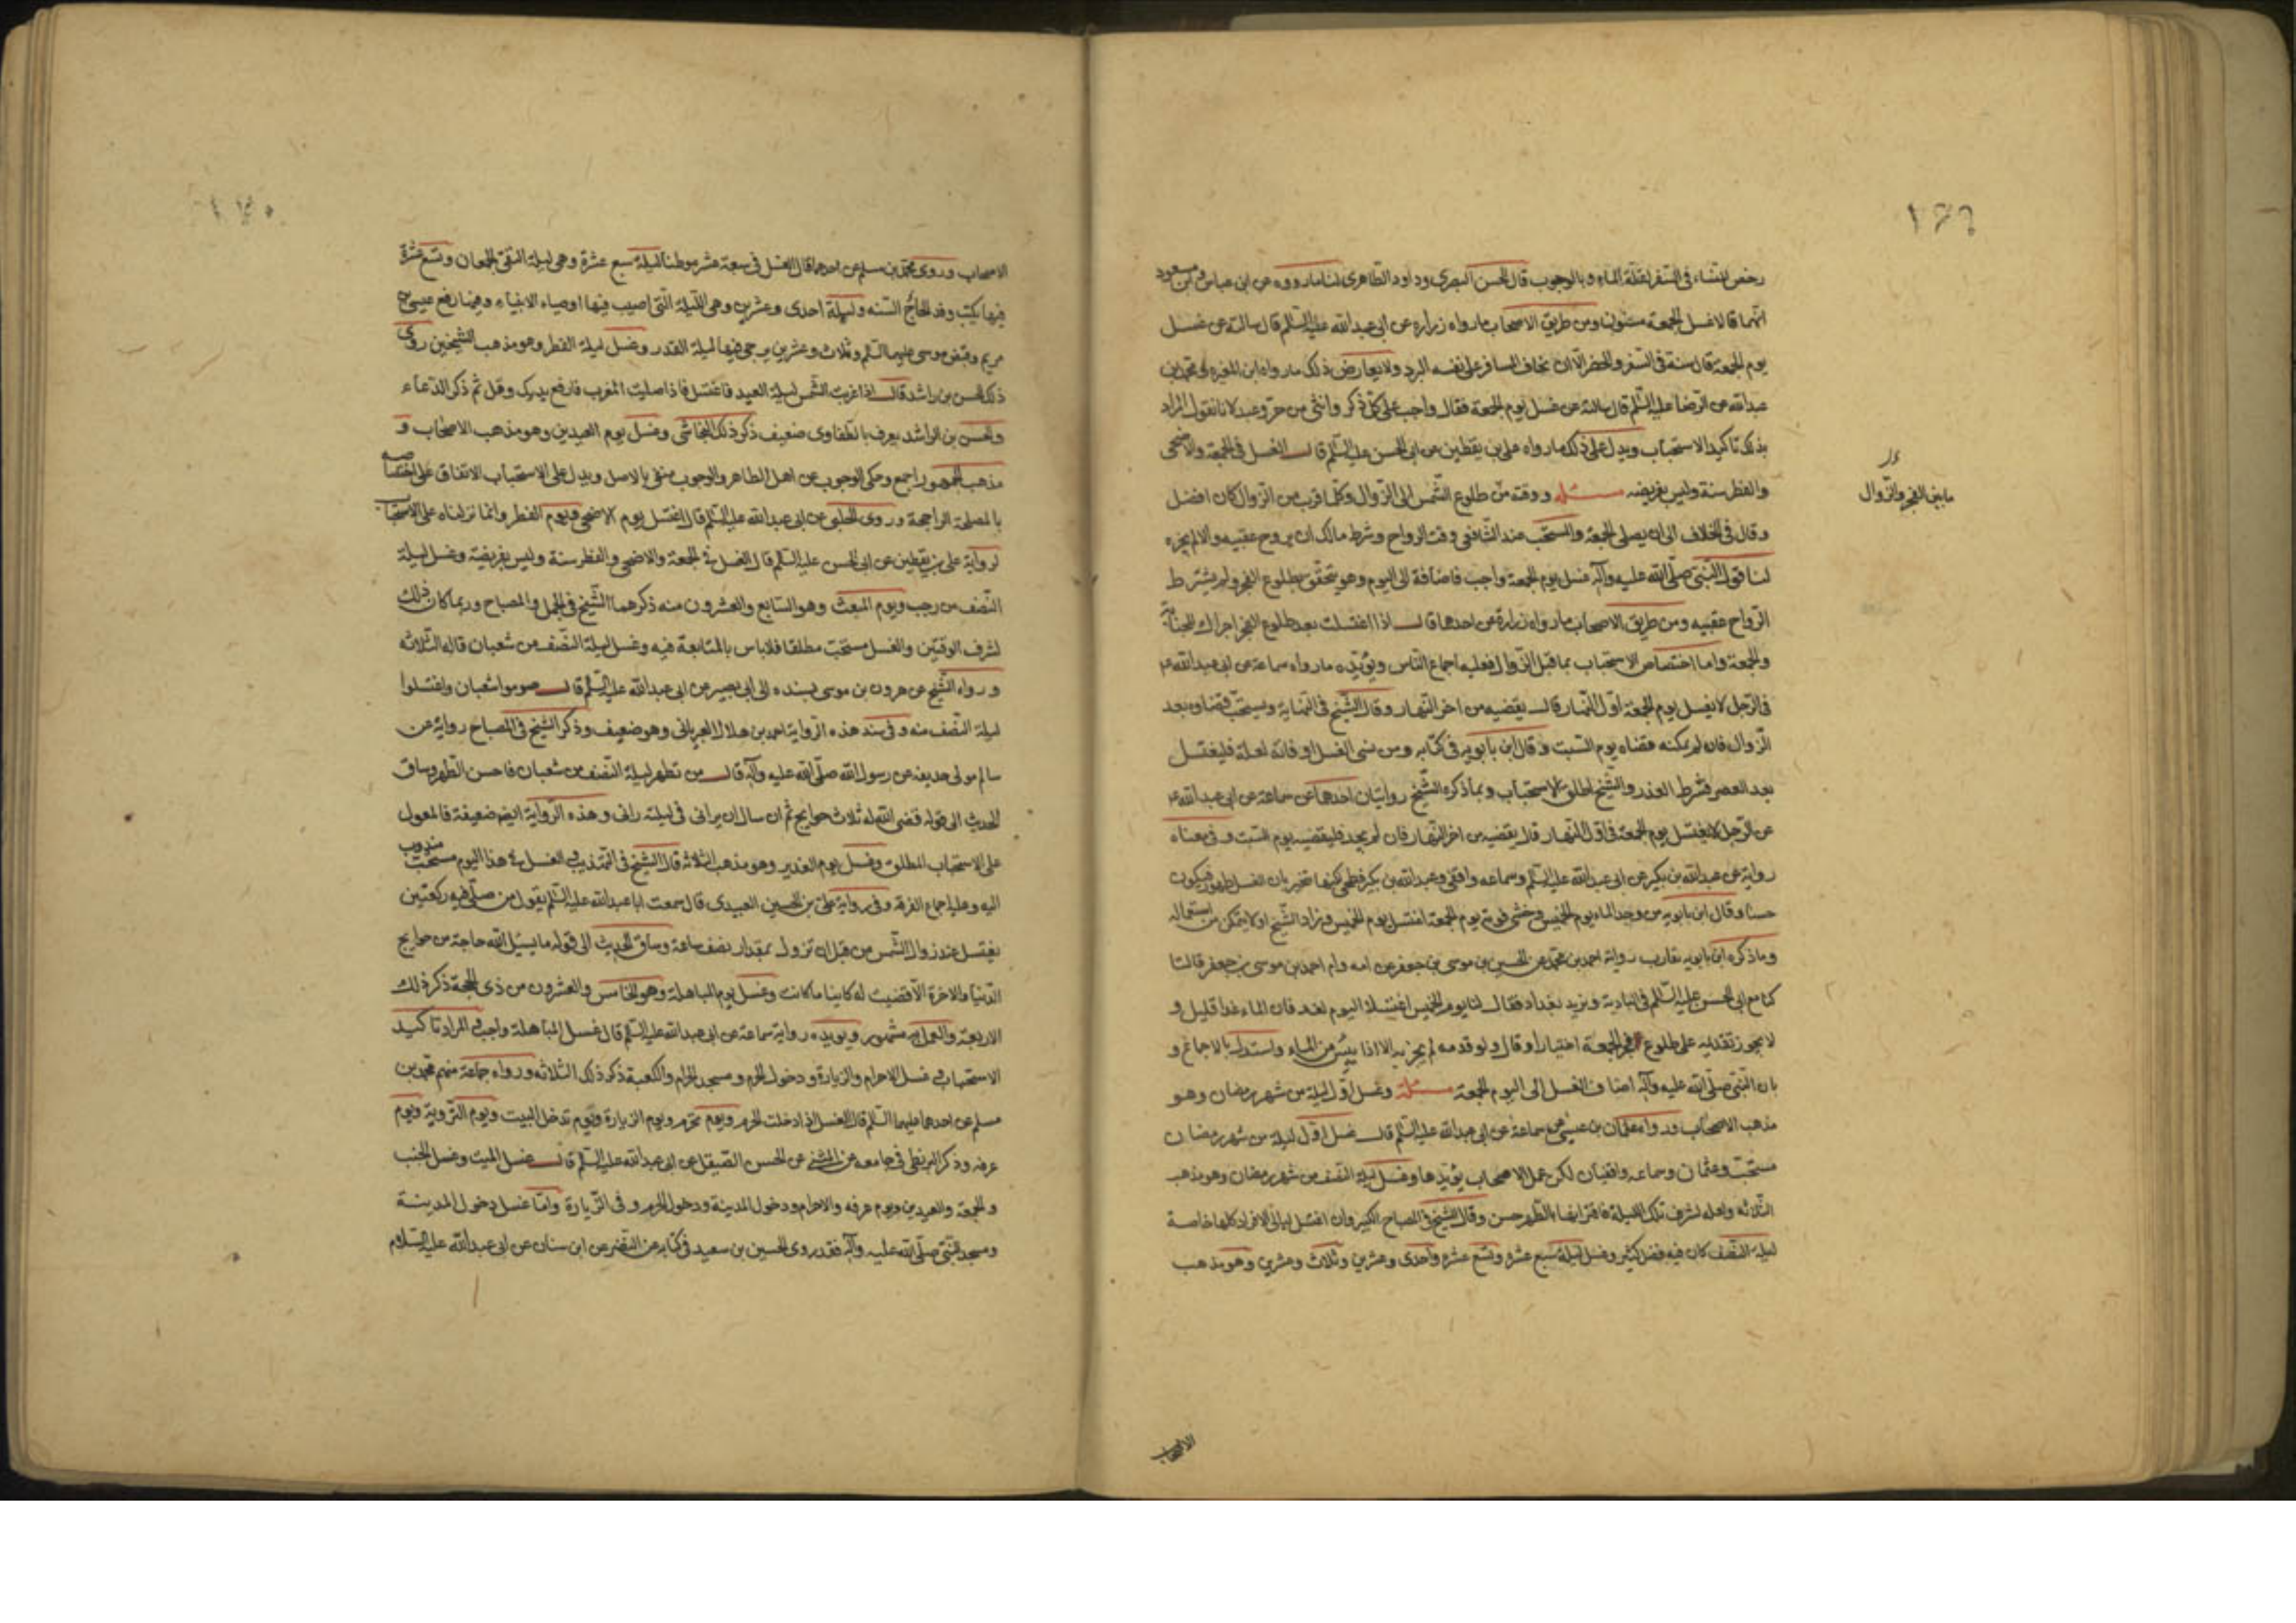 ١٦٩
رخص للنساء فی السفر لقلة الماء وبالوجوب قال الحسن البصری وداود الظاهری لنا ما رووه عن ابن عباس وابن مسعود
انهما قالا غسل الجمعة مسنون ومن طریق الاصحاب ما رواه زراره عن ابی عبدالله علیه السلم قال سالته عن غسل
یوم الجمعة قال سنة فی السفر والحضر الا ان یخاف المسافر علی نفسه البرد ولا یعارض ذلک ما رواه ابن المغیره عن محمد بن
عبدالله عن الرضا علیه السلم قال سالته عن غسل یوم الجمعة فقال واجب علی کل ذکر وانثی من حر وعبد لانا نقول المراد
بذلک تاکید الاستحباب ویدل علی ذلک ما رواه علی بن یقطین عن ابی الحسن علیه السلم قال الغسل فی الجمعة والاضحی
والفطر سنة ولیس بفریضه مسئلة ووقته من طلوع الشمس الی الزوال وکلما قرب من الزوال کان افضل
ما بین الفجر والزوال
وقال فی الخلاف الی ان یصلی الجمعة والمستحب عند الشافعی وقت الرواح وشرط مالک ان یروح عقیبه والا لم یجزه
لنا قول النبی صلی الله علیه وآله غسل یوم الجمعة واجب فاضافة الی الیوم وهو یتحقق بطلوع الفجر ولم یشترط
الرواح عقیبه ومن طریق الاصحاب ما رواه زرارة عن احدهما قال اذا اغتسلت بعد طلوع الفجر اجزاک للجنابة
والجمعة واما اختصاص الاستحباب بما قبل الزوال فعلیه اجماع الناس ویؤیده ما رواه سماعة عن ابی عبدالله ع
فی الرجل لا یغسل یوم الجمعة اول النهار قال یقضیه من اخر النهار وقال الشیخ فی النهایة ویستحب قضاوه بعد
الزوال فان لم یمکنه قضاه یوم السبت وقال ابن بابویه فی کتابه ومن نسی الغسل او فاته لعلة فلیغتسل
بعد العصر فشرط العذر والشیخ اطلق الاستحباب وبما ذکره الشیخ روایتان احدهما عن سماعة عن ابی عبدالله ع
عن الرجل لا یغتسل یوم الجمعة فی اول النهار قال یقضیه من اخر النهار فان لم یجد فلیقضیه یوم السبت وفی معناه
روایة عن عبدالله بن بکیر عن ابی عبدالله علیه السلم وسماعه واقفی وعبدالله بن بکیر فطحی لکنها تنجبر بان الغسل طهور فیکون
حسنا وقال ابن بابویه من وجد الماء یوم الخمیس وخشی فوته یوم الجمعة اغتسل یوم الخمیس وزاد الشیخ او لا یتمکن من استعماله
وما ذکره ابن بابویه یقارب روایة احمد بن محمد عن الحسین بن موسی بن جعفر عن امه وام احمد بن موسی بن جعفر قالتا
کنا مع ابی الحسن علیه السلم فی البادیة ونرید بغداد فقال لنا یوم الخمیس اغتسلا الیوم لغد فان الماء غدا قلیل و
لا یجوز تقدیمه علی طلوع فجر الجمعة اختیارا وقال ولو قدمه لم یجز به الا اذا یئس من الماء واستدل بالاجماع و
بان النبی صلی الله علیه وآله اضاف الغسل الی الیوم الجمعة مسئلة وغسل اول لیلة من شهر رمضان وهو
مذهب الاصحاب ورواه عثمان بن عیسی عن سماعة عن ابی عبدالله علیه السلم قال غسل اول لیلة من شهر رمضان
مستحب وعثمان وسماعه واقفیان لکن عمل الاصحاب یؤیدها وغسل لیلة النصف من شهر رمضان وهو مذهب
الثلاثه ولعله لشرف تلک اللیلة فاقترانها بالطهر حسن وقال الشیخ فی المصباح الکبیر وان اغتسل لیالی الافراد کلها خاصة
لیلة النصف کان فیه فضل کثیر وغسل لیلة سبع عشره وتسع عشره واحدی وعشرین وثلاث وعشرین وهو مذهب
الاصحاب
١٧٠
الاصحاب وروی محمد بن مسلم عن احدهما قال الغسل فی سبعة عشر موطنا لیلة سبع عشرة وهی لیلة التقی الجمعان وتسع عشرة
فیها یکتب وفد الحاج السنه ولیلة احدی وعشرین وهی اللیلة التی اصیب فیها اوصیاء الانبیاء وفیها رفع عیسی بن
مریم وقبض موسی علیهما السلم وثلاث وعشرین یرجی فیها لیلة القدر وغسل لیلة الفطر وهو مذهب الشیخین روی
ذلک الحسن بن راشد قال اذا غربت الشمس لیلة العید فاغتسل فاذا صلیت المغرب فارفع یدیک وقل ثم ذکر الدعاء
والحسن بن الراشد یعرف بالطفاوی ضعیف ذکر ذلک النجاشی وغسل یوم العیدین وهو مذهب الاصحاب و
مذهب الجمهور اجمع وحکی الوجوب عن اهل الظاهر والوجوب منفی بالاصل ویدل علی الاستحباب الاتفاق علی اختصاصه
بالمصلحة الراجحة وروی الحلبی عن ابی عبدالله علیه السلم قال اغتسل یوم الاضحی ویوم الفطر وانما نزلناه علی الاستحباب
لروایة علی بن یقطین عن ابی الحسن علیه السلم قال الغسل فی الجمعة والاضحی والفطر سنة ولیس بفریضة وغسل لیلة
النصف من رجب ویوم المبعث وهو السابع والعشرون منه ذکرهما الشیخ فی الجمل والمصباح وربما کان ذلک
لشرف الوقتین والغسل مستحب مطلقا فلا باس بالمتابعة فیه وغسل لیلة النصف من شعبان قاله الثلاثه
ورواه الشیخ عن هرون بن موسی بسنده الی ابی بصیر عن ابی عبدالله علیه السلم قال صوموا شعبان واغتسلوا
لیلة النصف منه وفی سند هذه الروایة احمد بن هلال العبرتائی وهو ضعیف وذکر الشیخ فی المصباح روایة عن
سالم مولی حذیفه عن رسول الله صلی الله علیه وآله قال من تطهر لیلة النصف من شعبان فاحسن الطهر وساق
الحدیث الی قوله قضی الله له ثلاث حوایج ثم ان سال ان یرانی فی لیلته رانی وهذه الروایة ایضا ضعیفة فالمعول
علی الاستحباب المطلق وغسل یوم الغدیر وهو مذهب الثلاثة قال الشیخ فی التهذیب الغسل فی هذا الیوم مستحب مندوب
الیه وعلیه اجماع الفرقه وفی روایة علی بن الحسین العبیدی قال سمعت ابا عبدالله علیه السلم یقول من صلی فیه رکعتین
یغتسل عند زوال الشمس من قبل ان تزول بمقدار نصف ساعة وساق الحدیث الی قوله ما یسئل الله حاجة من حوایج
الدنیا والاخرة الا قضیت له کاینا ما کانت وغسل یوم المباهلة وهو الخامس والعشرون من ذی الحجة ذکر ذلک
الاربعة والعمل به مشهور ویویده روایة سماعة عن ابی عبدالله علیه السلم قال غسل المباهلة واجب والمراد تاکید
الاستحباب وغسل الاحرام والزیارة ودخول الحرم ومسجد الحرام والکعبة ذکر ذلک الثلاثه ورواه جماعة منهم محمد بن
مسلم عن احدهما علیهما السلم قال الغسل اذا دخلت الحرم ویوم تحرم ویوم الزیارة ویوم تدخل البیت ویوم الترویة ویوم
عرفه وذکر البزنطی فی جامعه عن المثنی عن الحسن الصیقل عن ابی عبدالله علیه السلم قال غسل المیت وغسل الجنب
والجمعة والعیدین ویوم عرفه والاحرام ودخول المدینة ودخول الحرم وفی الزیارة واما غسل دخول المدینة
ومسجد النبی صلی الله علیه وآله فقد روی الحسین بن سعید فی کتابه عن النضر عن ابن سنان عن ابی عبدالله علیه السلام